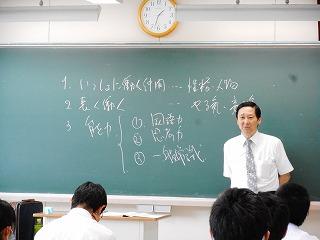 1. いっしょに働く仲間 … 性格・人物
2. 長く働く … やる気・
3 能力
① 国語力
② 思考力
③ 一般常識